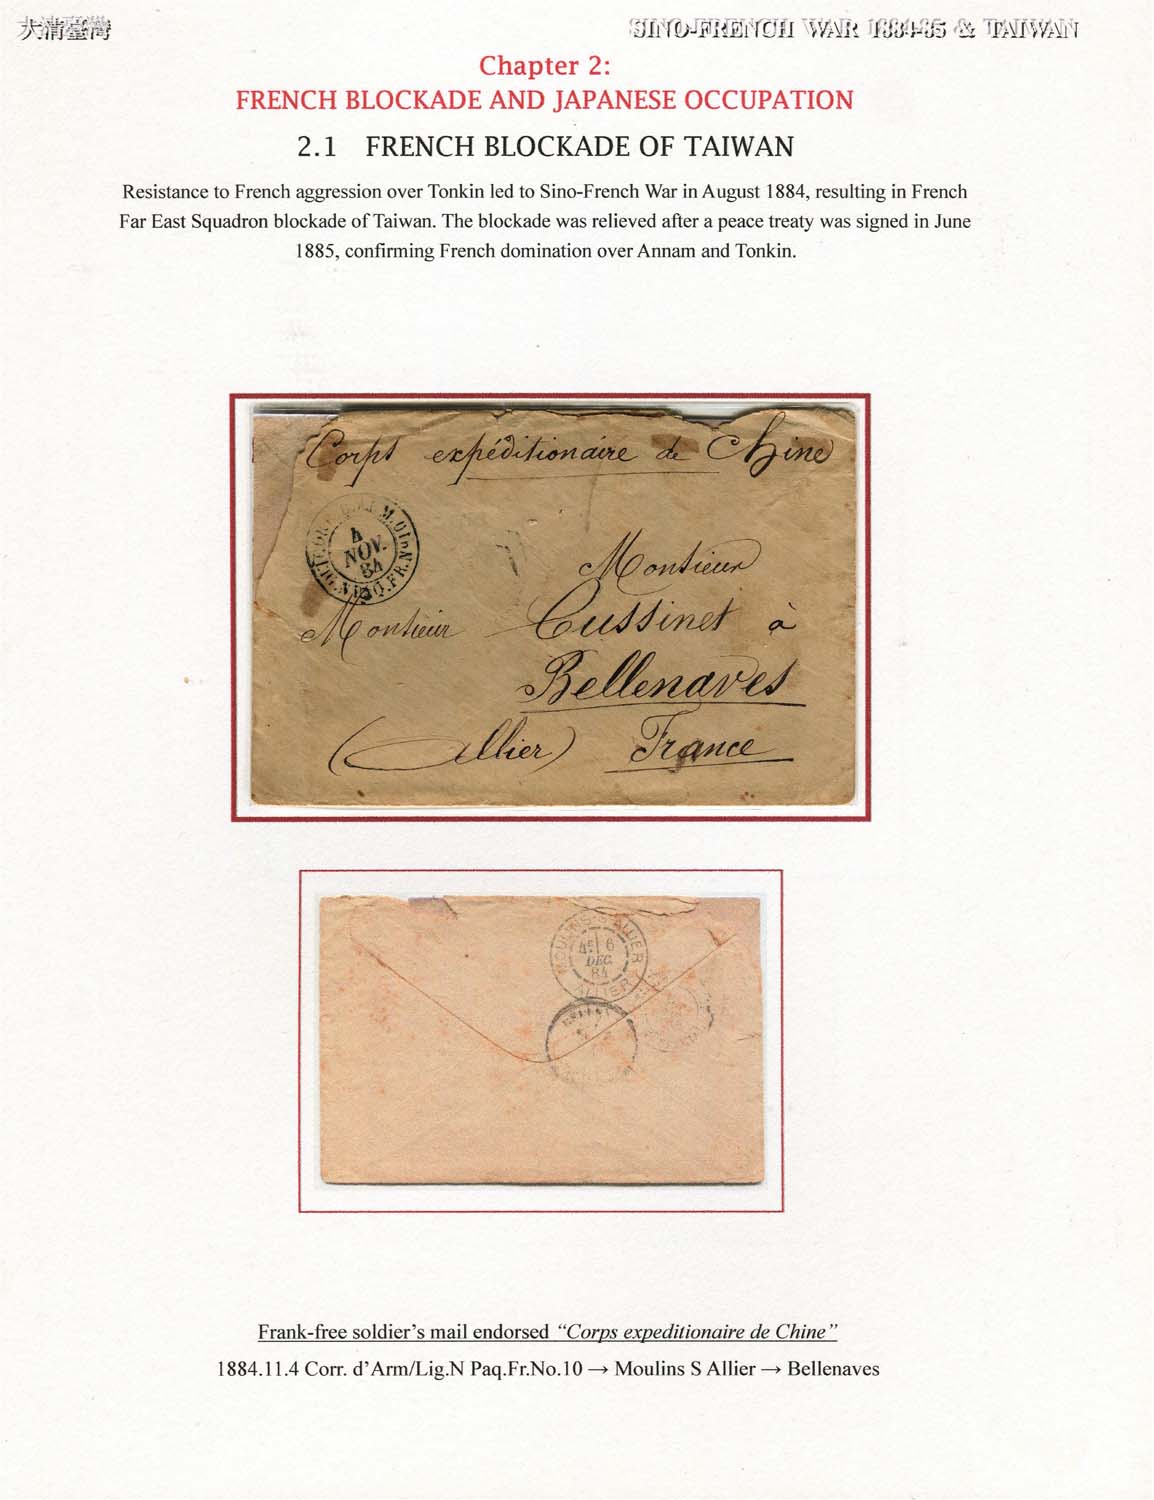 大清臺灣
SINO-FRENCH WAR 1884-85 & TAIWAN
Chapter 2:
FRENCH BLOCKADE AND JAPANESE OCCUPATION
2.1 FRENCH BLOCKADE OF TAIWAN
Resistance to French aggression over Tonkin led to Sino-French War in August 1884, resulting in French
Far East Squadron blockade of Taiwan. The blockade was relieved after a peace treaty was signed in June
1885, confirming French domination over Annam and Tonkin.
Corps expéditionaire de Chine
4
NOV.
84
Monsieur
Monsieur Cussinet à
Bellenaves
(Allier) France
MOULINS-S-ALLIER
6
DEC.
84
ALLIER
Frank-free soldier's mail endorsed "Corps expeditionaire de Chine"
1884.11.4 Corr. d'Arm/Lig.N Paq.Fr.No.10 → Moulins S Allier → Bellenaves